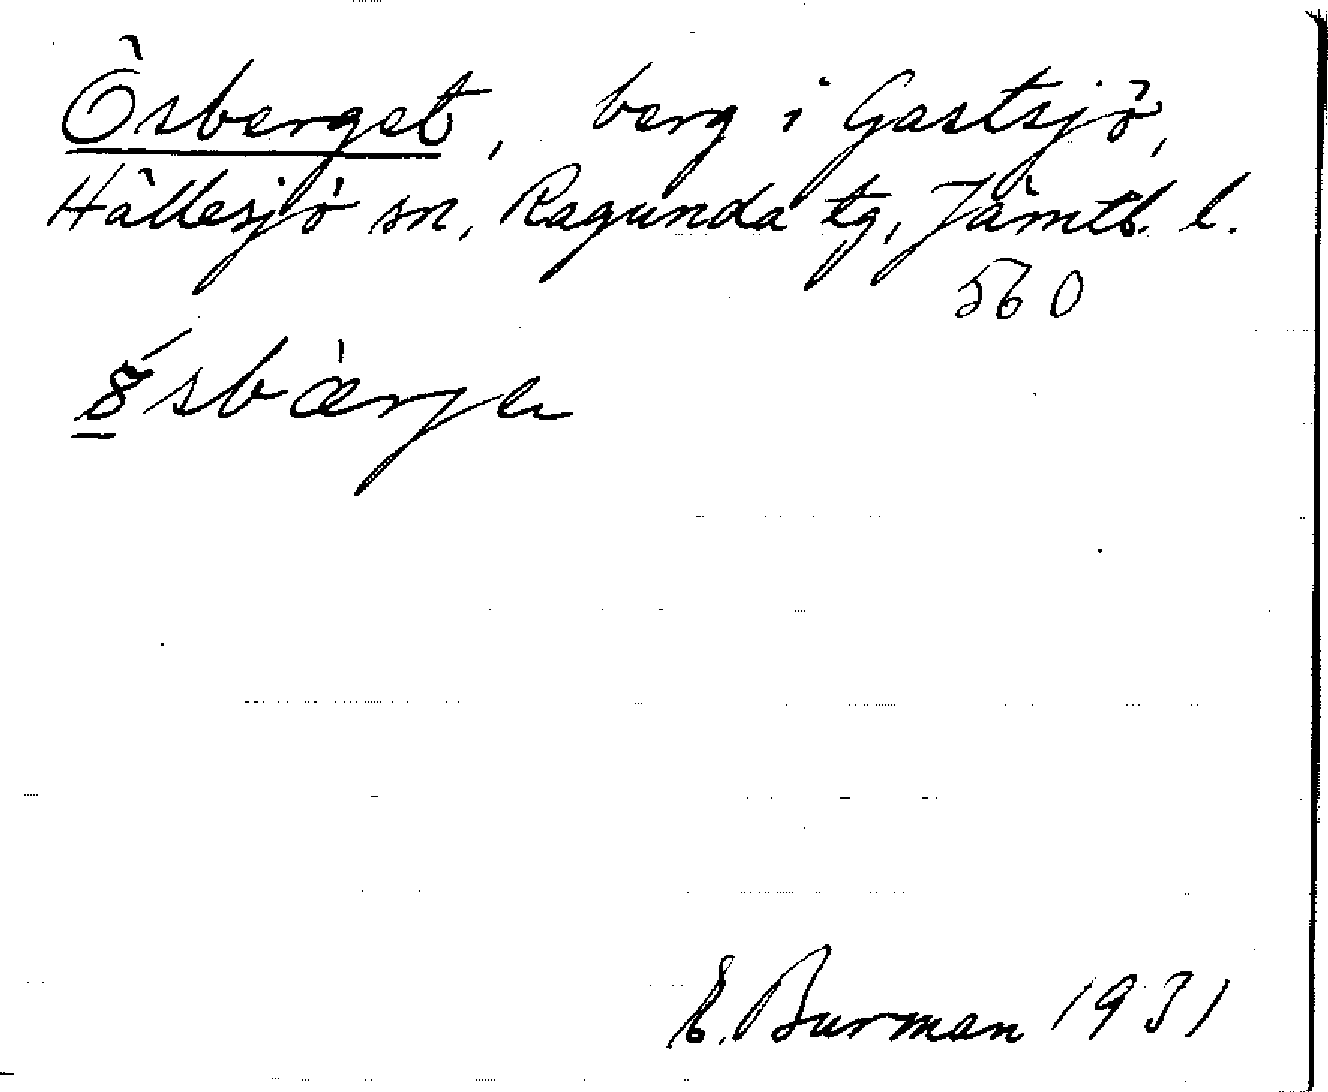 Ösberget, berg i Gastsjö,
Hällesjö sn, Ragunda tg, Jämtl. l.
560
E. Burman 1931